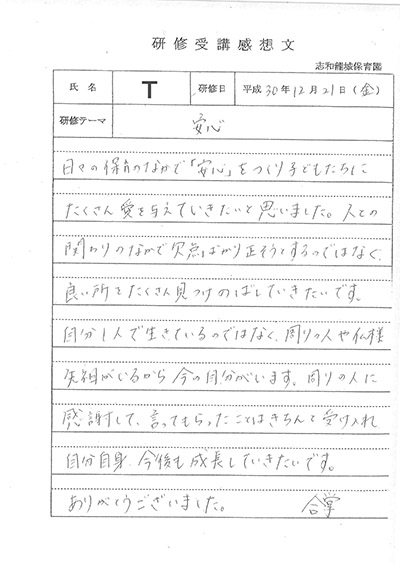 研修受講感想文
志和龍城保育園
氏名 T 研修日 平成30年12月21日(金)
研修テーマ 安心
日々の保育のなかで「安心」をつくり子どもたちに
たくさん愛を与えていきたいと思いました。人との
関わりのなかで欠点ばかり正そうとするのではなく、
良い所をたくさん見つけのばしていきたいです。
自分1人で生きているのではなく、周りの人や仏様
先祖がいるから今の自分がいます。周りの人に
感謝して、言ってもらったことはきちんと受け入れ
自分自身、今後も成長していきたいです。
ありがとうございました。 合掌